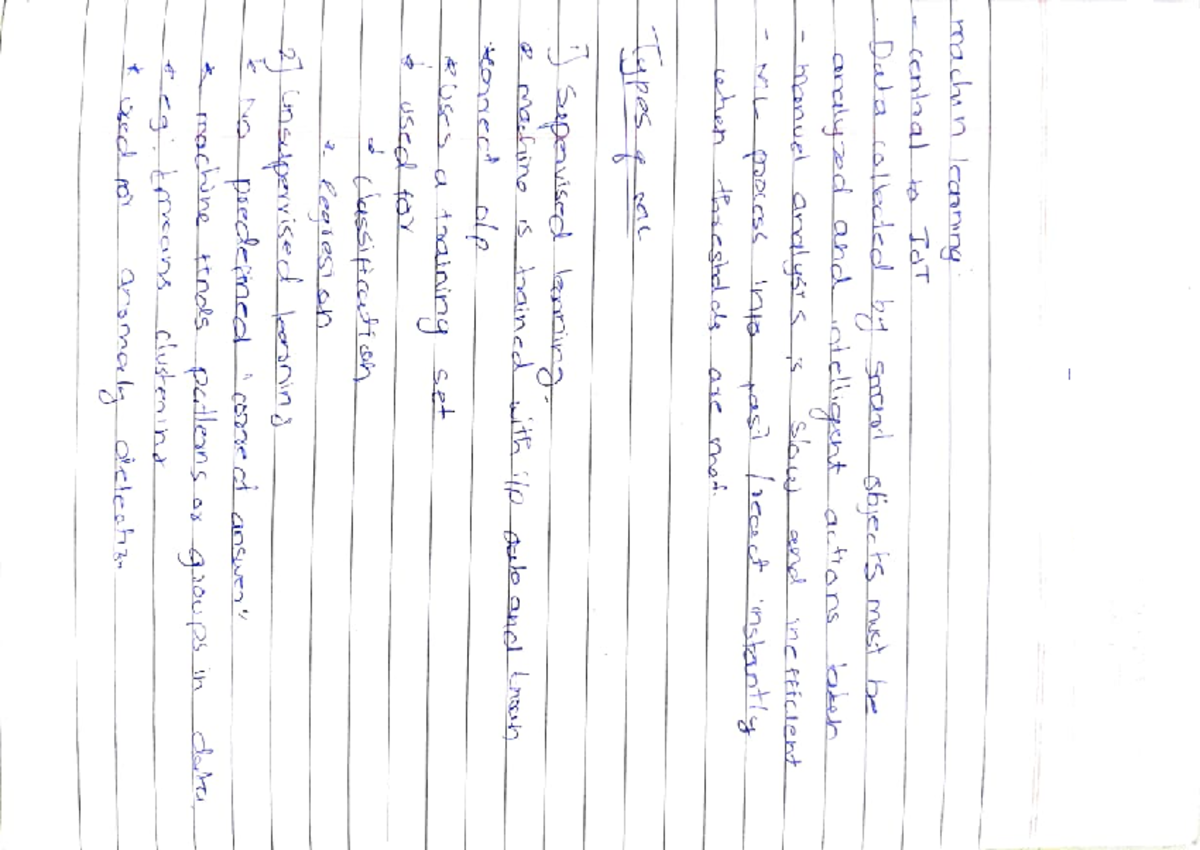 machin learning
- central to IoT
- Data collected by smart objects must be
analyzed and intelligent actions taken
- manual analysis is slow and inefficient
- ML process info fast / react instantly
when thresholds are met.
Types of ML
1] Supervised lerning
* machine is trained with i/p data and known
correct o/p
* Uses a training set
* used for
* Classification
* Regression
2] Unsupervised learning
* No predefined "correct answer"
* machine finds patterns or groups in data
* eg: kmeans clustering
* used for anomaly detection